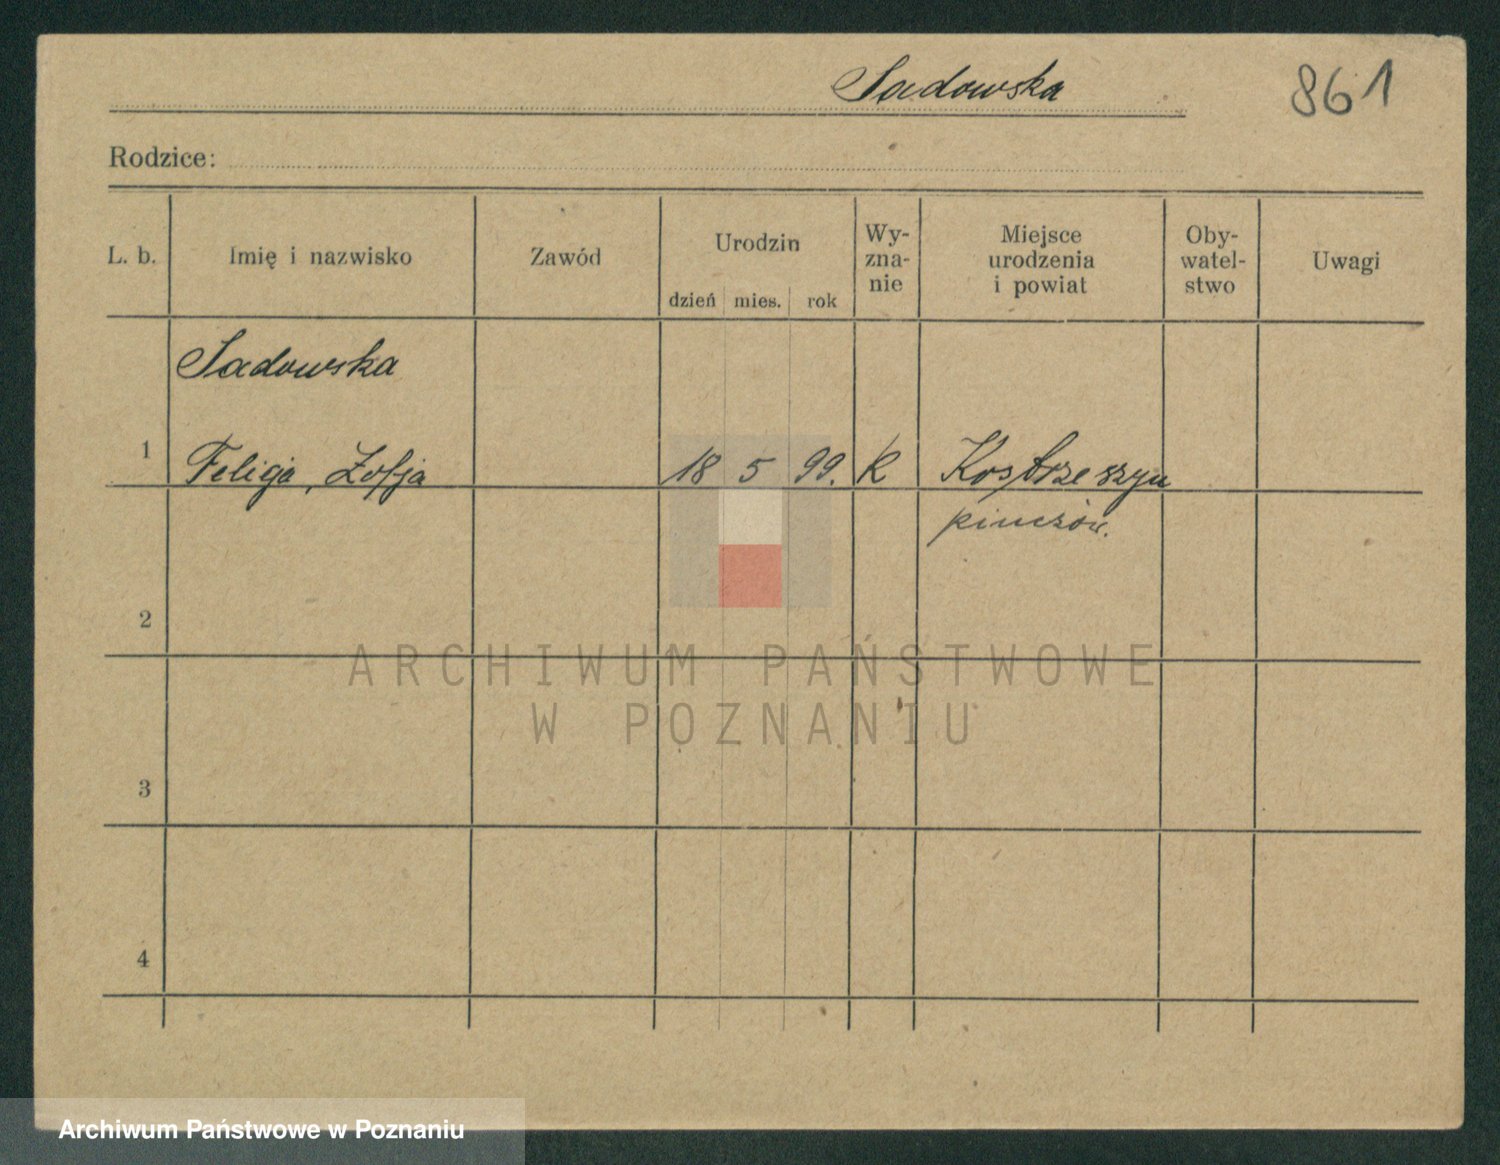 Sadowska
861
Rodzice:
L. b. Imię i nazwisko Zawód Urodzin dzień mies. rok Wy-zna-nie Miejsce urodzenia i powiat Oby-watel-stwo Uwagi
Sadowska
1 Felicja, Zofja 18 5 99. k Kostrzeszyn
pinczów.
2
ARCHIWUM PAŃSTWOWE
W POZNANIU
3
4
Archiwum Państwowe w Poznaniu